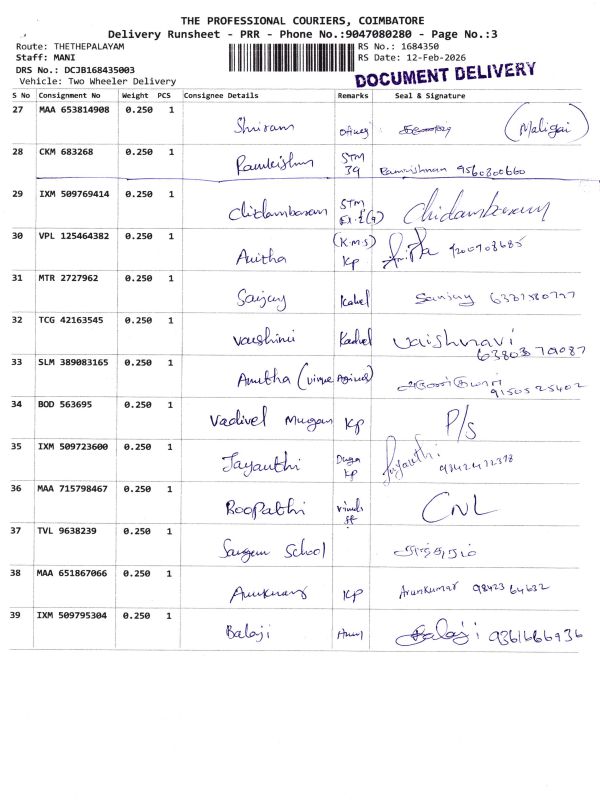 THE PROFESSIONAL COURIERS, COIMBATORE
Delivery Runsheet - PRR - Phone No.:9047080280 - Page No.:3
Route: THETHEPALAYAM RS No.: 1684350
Staff: MANI RS Date: 12-Feb-2026
DRS No.: DCJB168435003
Vehicle: Two Wheeler Delivery
DOCUMENT DELIVERY
S No Consignment No Weight PCS Consignee Details Remarks Seal & Signature
27 MAA 653814908 0.250 1 Shriram (Maligai)
28 CKM 683268 0.250 1 Ramkishn STM 39 Ramkrishnan 9560800660
29 IXM 509769414 0.250 1 Chidambaram STM Chidambaram
30 VPL 125464382 0.250 1 Anitha (K.M.S) KP Anitha 9200908685
31 MTR 2727962 0.250 1 Sanjay Kadvel Sanjay
32 TCG 42163545 0.250 1 Vaishnavi Kadvel Vaishnavi 6380379087
33 SLM 389083165 0.250 1 Amutha 9150525402
34 BOD 563695 0.250 1 Vadivel Murugan KP P/S
35 IXM 509723600 0.250 1 Jayanthi Durga KP Jayanthi
36 MAA 715798467 0.250 1 Boopathi CNL
37 TVL 9638239 0.250 1 Sangam School
38 MAA 651867066 0.250 1 Arunkumar KP Arunkumar 98423 64632
39 IXM 509795304 0.250 1 Balaji Balaji 9361666936